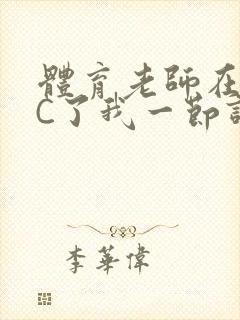 體育老師在
C了我一節
李華偉